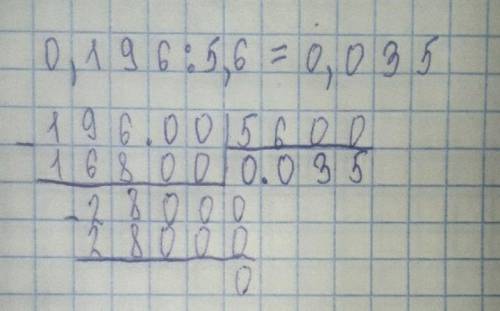 0,196:5,6=0,035
-196.00|5600
16800|0.035
-28000
28000
0